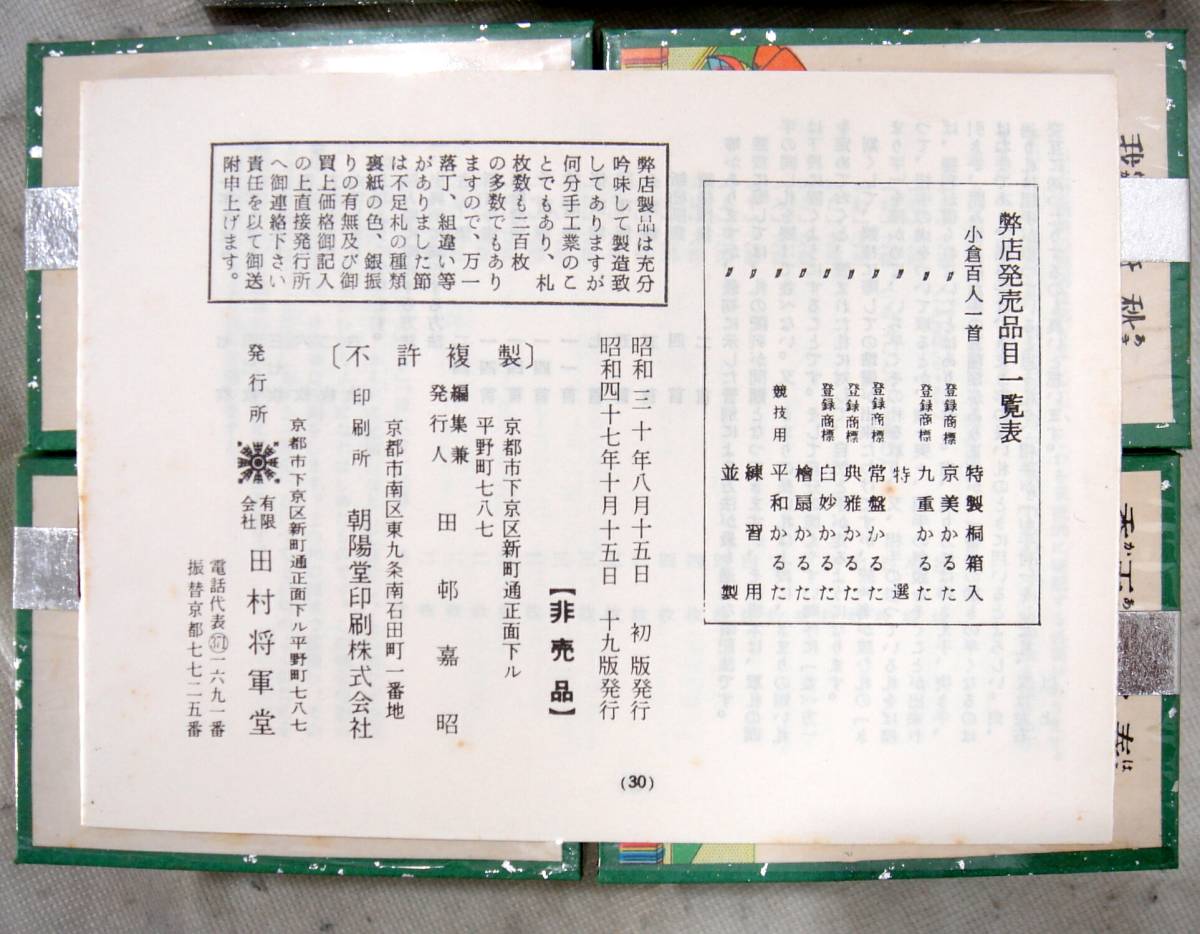 弊店発売品目一覧表
小倉百人一首 特製桐箱入
〃 登録商標 京美かるた
〃 登録商標 九重かるた
〃 特選
〃 登録商標 常盤かるた
〃 登録商標 典雅かるた
〃 登録商標 白妙かるた
〃 檜扇かるた
〃 競技用 平和かるた
〃 練習用
〃 並製
弊店製品は充分
吟味して製造致
してありますが
何分手工業のこ
とでもあり、札
枚数も二百枚
の多数でもあり
ますので、万一
落丁、組違い等
がありました節
は不足札の種類
裏紙の色、銀振
りの有無及び御
買上価格御記入
の上直接発行所
へ御連絡下さい
責任を以て御送
附申上げます。
昭和三十年八月十五日 初版発行
昭和四十七年十月十五日 十九版発行
【非売品】
〔不許複製〕
京都市下京区新町通正面下ル
平野町七八七
編集兼
発行人 田邨嘉昭
京都市南区東九条南石田町一番地
印刷所 朝陽堂印刷株式会社
京都市下京区新町通正面下ル平野町七八七
発行所 有限会社 田村将軍堂
電話代表371一六九一番
振替京都七七二五番
(30)
秋
あき